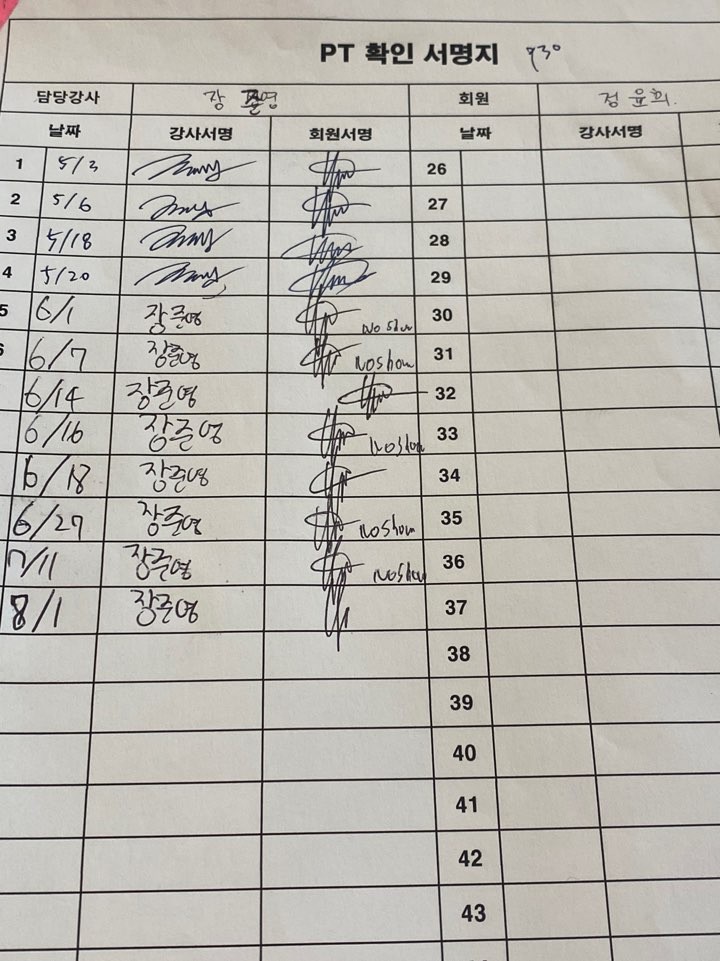 PT 확인 서명지 930
담당강사 장준영 회원 정윤희.
날짜 강사서명 회원서명 날짜 강사서명
1 5/3 26
2 5/6 27
3 5/18 28
4 5/20 29
5 6/1 장준영 No show 30
6/7 장준영 Noshow 31
6/14 장준영 32
6/16 장준영 Noshow 33
6/18 장준영 34
6/27 장준영 Noshow 35
7/11 장준영 Noshow 36
8/1 장준영 37
38
39
40
41
42
43